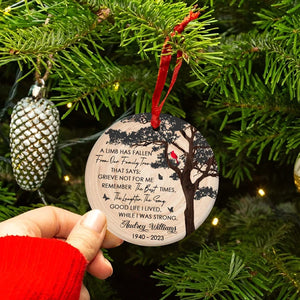 A LIMB HAS FALLEN
From Our Family Tree
THAT SAYS:
GRIEVE NOT FOR ME
REMEMBER The Best TIMES,
The Laughter The Song
GOOD LIFE I LIVED,
WHILE I WAS STRONG.
Audrey Williams
1940 - 2023